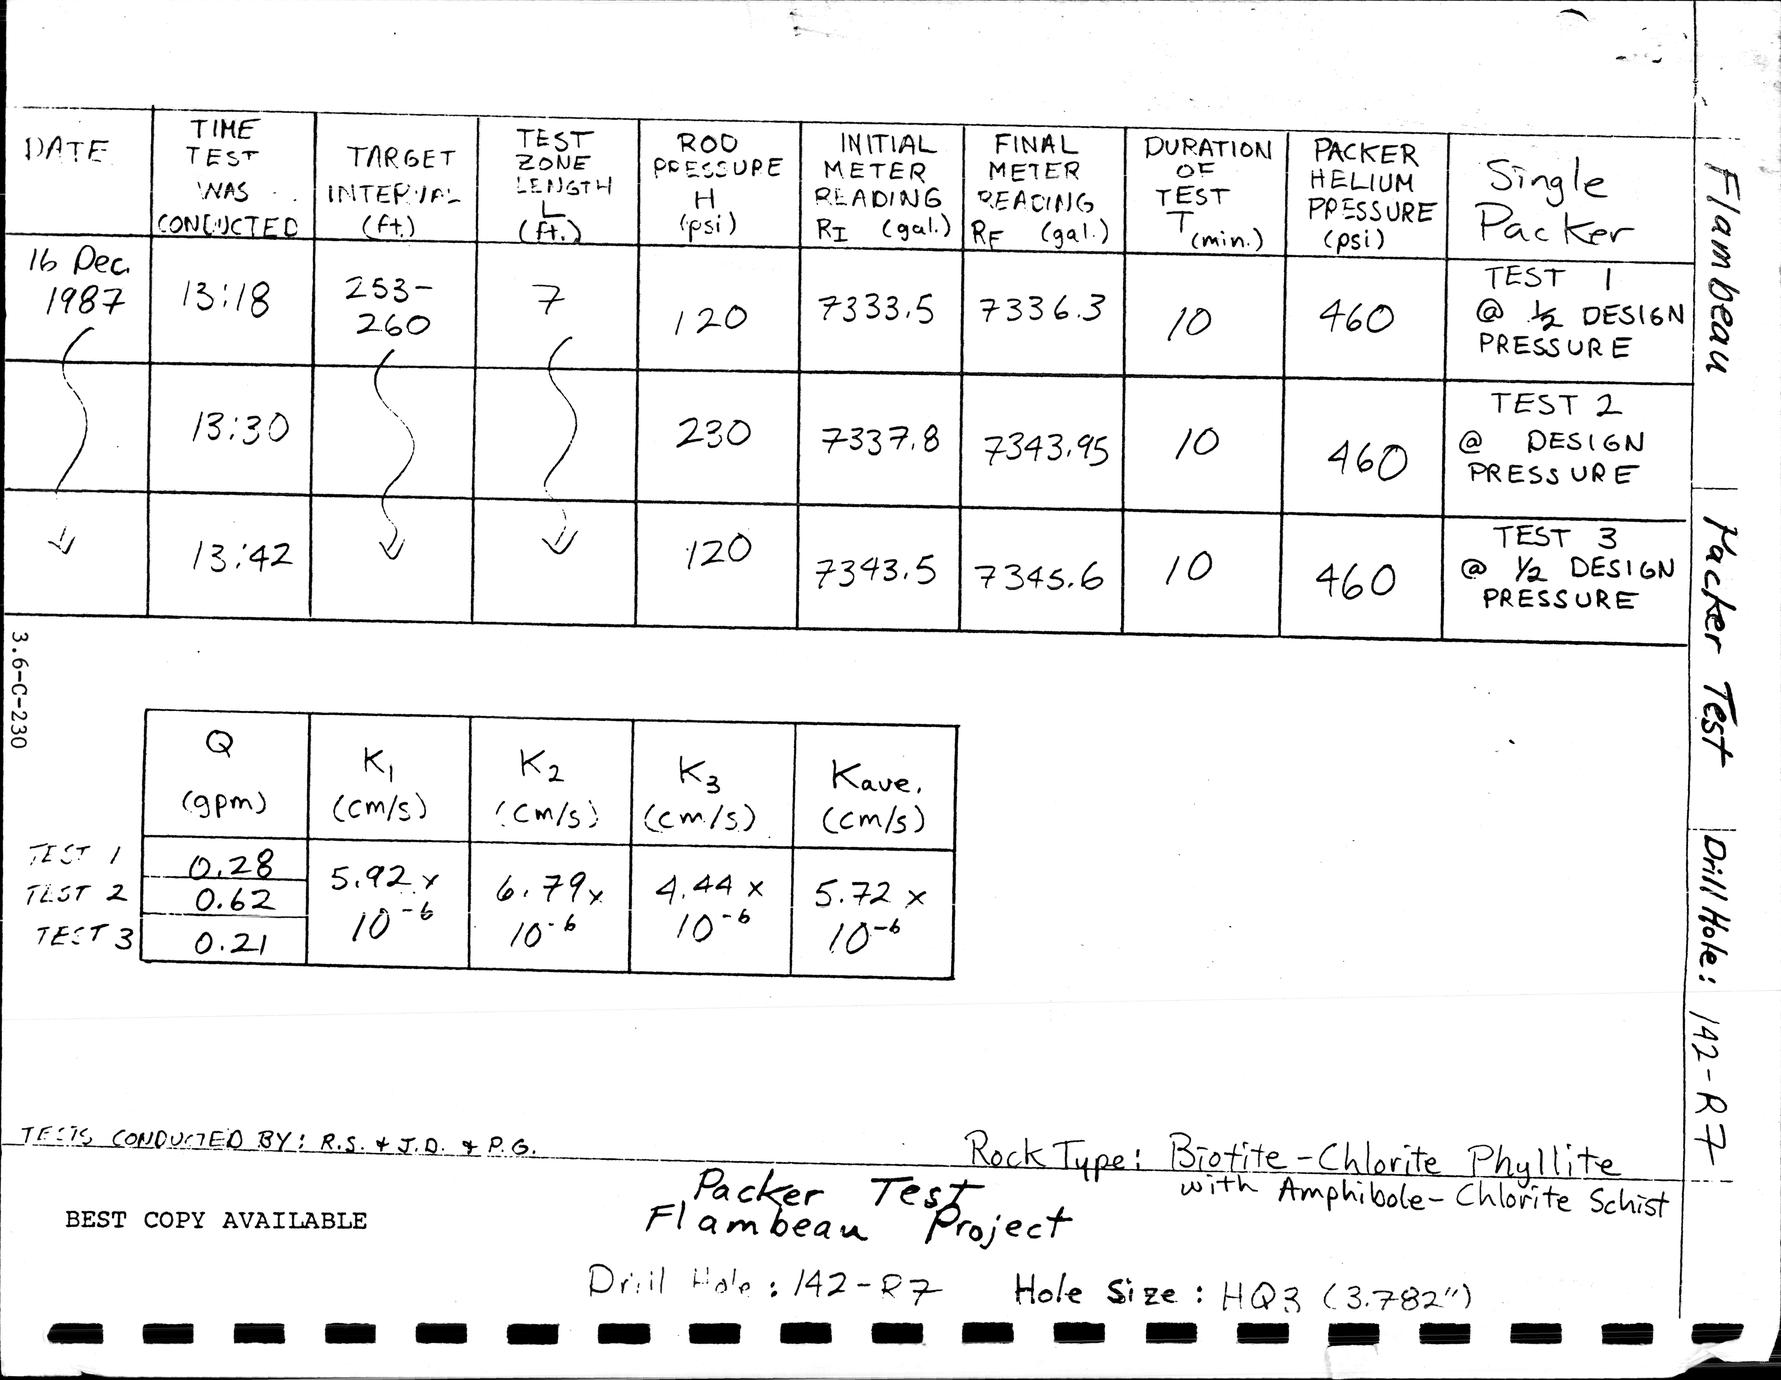 DATE
TIME
TEST
WAS
CONDUCTED
TARGET
INTERVAL
(ft.)
TEST
ZONE
LENGTH
L
(ft.)
ROD
PRESSURE
H
(psi)
INITIAL
METER
READING
RI (gal.)
FINAL
METER
READING
RF (gal.)
DURATION
OF
TEST
T (min.)
PACKER
HELIUM
PRESSURE
(psi)
Single
Packer
16 Dec.
1987
13:18
253-
260
7
120
7333.5
7336.3
10
460
TEST 1
@ 1/2 DESIGN
PRESSURE
13:30
230
7337.8
7343.95
10
460
TEST 2
@ DESIGN
PRESSURE
13:42
120
7343.5
7345.6
10
460
TEST 3
@ 1/2 DESIGN
PRESSURE
3.6-C-230
Q
(gpm)
K1
(cm/s)
K2
(cm/s)
K3
(cm/s)
Kave.
(cm/s)
TEST 1
0.28
TEST 2
0.62
TEST 3
0.21
5.92 x
10-6
6.79 x
10-6
4.44 x
10-6
5.72 x
10-6
TESTS CONDUCTED BY: R.S. & J.D. & P.G.
Rock Type: Biotite-Chlorite Phyllite
with Amphibole-Chlorite Schist
Packer Test
Flambeau Project
BEST COPY AVAILABLE
Drill Hole: 142-R7
Hole Size: HQ3 (3.782")
Flambeau Packer Test Drill Hole: 142-R7